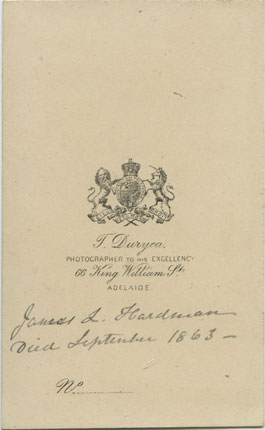 T. Duryea,
PHOTOGRAPHER TO HIS EXCELLENCY
66 King William St.,
ADELAIDE.
James L. Hardman
Died September 1863 —
No.